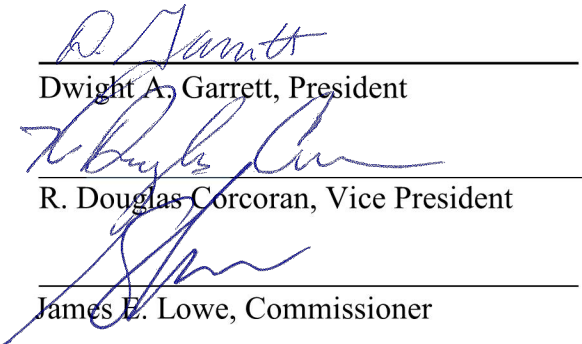 D. Garrett
Dwight A. Garrett, President
R. Douglas Cor
R. Douglas Corcoran, Vice President
James E. Lowe, Commissioner